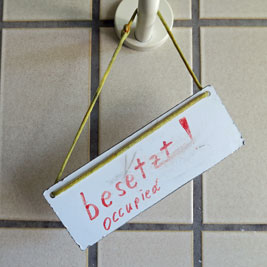 besetzt!
occupied